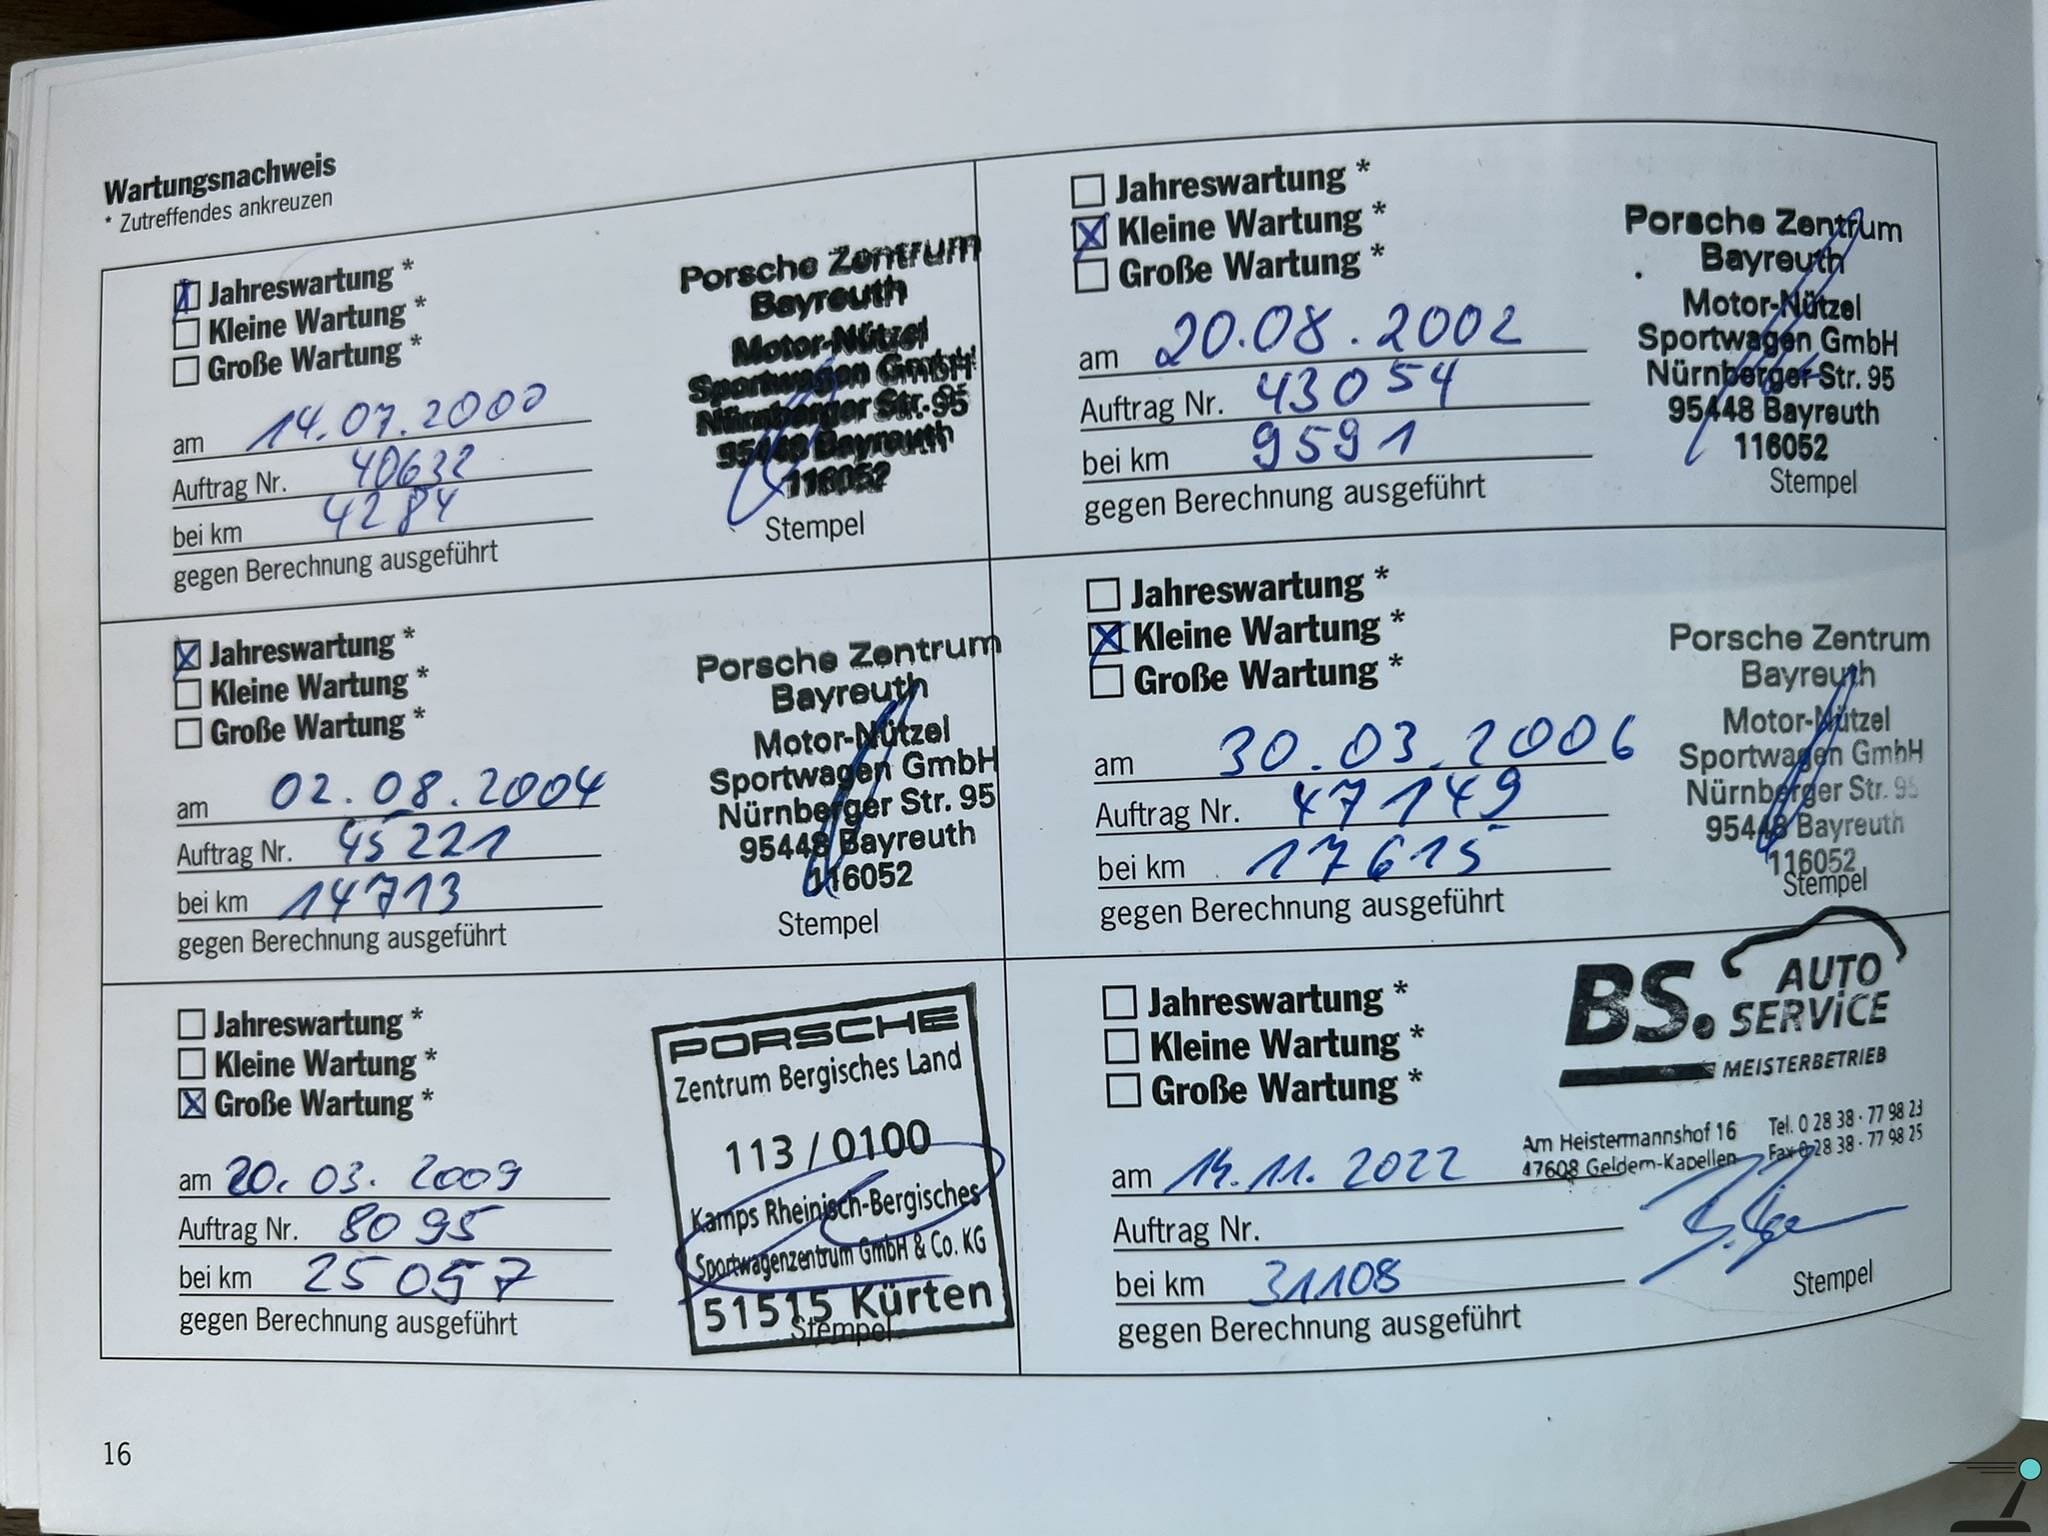 Wartungsnachweis
* Zutreffendes ankreuzen
Jahreswartung *
Kleine Wartung *
Große Wartung *
am 14.07.2000
Auftrag Nr. 40632
bei km 4284
gegen Berechnung ausgeführt
Porsche Zentrum
Bayreuth
Motor-Nützel
Sportwagen GmbH
Nürnberger Str. 95
95448 Bayreuth
116052
Stempel
Jahreswartung *
Kleine Wartung *
Große Wartung *
am 20.08.2002
Auftrag Nr. 43054
bei km 9591
gegen Berechnung ausgeführt
Porsche Zentrum
Bayreuth
Motor-Nützel
Sportwagen GmbH
Nürnberger Str. 95
95448 Bayreuth
116052
Stempel
Jahreswartung *
Kleine Wartung *
Große Wartung *
am 02.08.2004
Auftrag Nr. 45221
bei km 14713
gegen Berechnung ausgeführt
Porsche Zentrum
Bayreuth
Motor-Nützel
Sportwagen GmbH
Nürnberger Str. 95
95448 Bayreuth
116052
Stempel
Jahreswartung *
Kleine Wartung *
Große Wartung *
am 30.03.2006
Auftrag Nr. 47149
bei km 17615
gegen Berechnung ausgeführt
Porsche Zentrum
Bayreuth
Motor-Nützel
Sportwagen GmbH
Nürnberger Str. 95
95448 Bayreuth
116052
Stempel
Jahreswartung *
Kleine Wartung *
Große Wartung *
am 20.03.2009
Auftrag Nr. 8095
bei km 25057
gegen Berechnung ausgeführt
PORSCHE
Zentrum Bergisches Land
113/0100
Kamps Rheinisch-Bergisches
Sportwagenzentrum GmbH & Co. KG
51515 Kürten
Stempel
Jahreswartung *
Kleine Wartung *
Große Wartung *
am 14.11.2022
Auftrag Nr.
bei km 31108
gegen Berechnung ausgeführt
BS. AUTO
SERVICE
MEISTERBETRIEB
Am Heistermannshof 16 Tel. 0 28 38 - 77 98 23
47608 Geldern-Kapellen Fax 0 28 38 - 77 98 25
Stempel
16